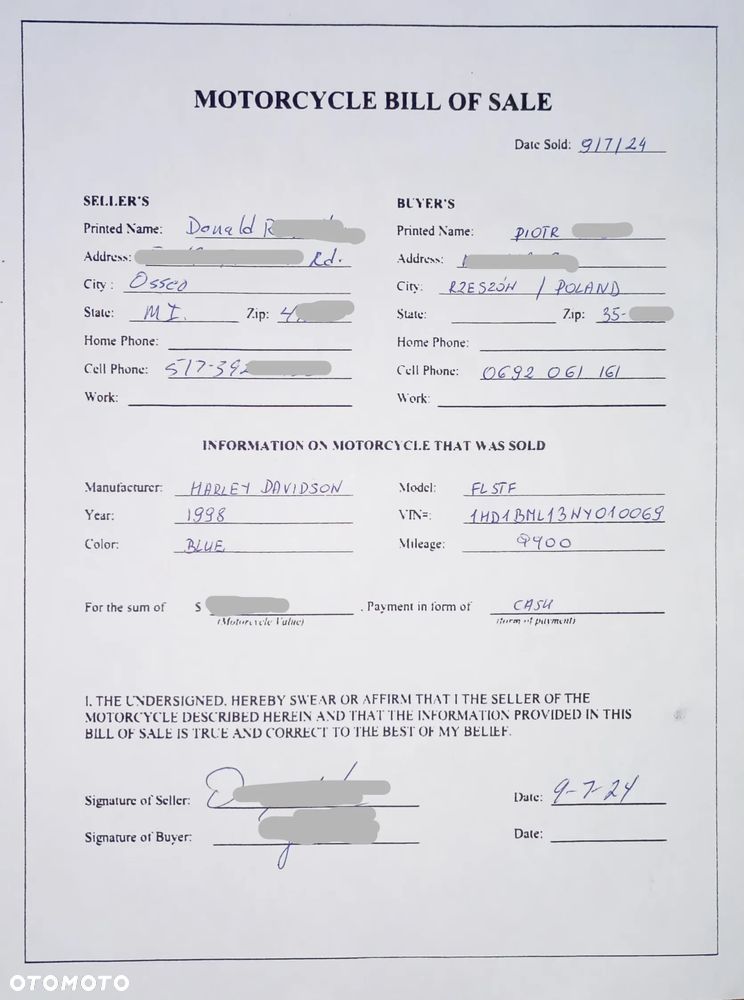 MOTORCYCLE BILL OF SALE
Date Sold: 9/7/24
SELLER'S
Printed Name: Donald R
Address: Rd.
City: Osseo
State: MI. Zip: 4
Home Phone:
Cell Phone: 517-392
Work:
BUYER'S
Printed Name: PIOTR
Address:
City: RZESZÓW / POLAND
State: Zip: 35-
Home Phone:
Cell Phone: 0692 061 161
Work:
INFORMATION ON MOTORCYCLE THAT WAS SOLD
Manufacturer: HARLEY DAVIDSON Model: FLSTF
Year: 1998 VIN#: 1HD1BML13WY010069
Color: BLUE Mileage: 9400
For the sum of $ . Payment in form of CASH
(Motorcycle Value) (form of payment)
I, THE UNDERSIGNED, HEREBY SWEAR OR AFFIRM THAT I THE SELLER OF THE
MOTORCYCLE DESCRIBED HEREIN AND THAT THE INFORMATION PROVIDED IN THIS
BILL OF SALE IS TRUE AND CORRECT TO THE BEST OF MY BELIEF.
Signature of Seller: Date: 9-7-24
Signature of Buyer: Date:
OTOMOTO